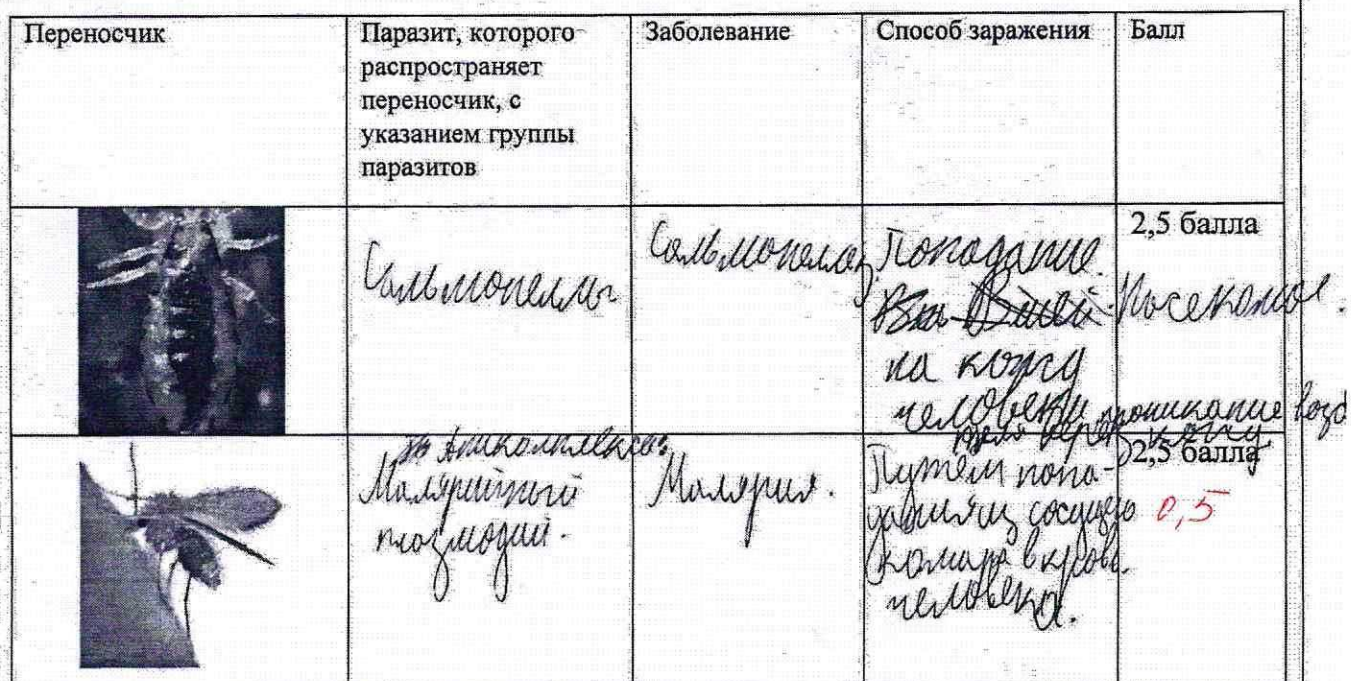 Переносчик
Паразит, которого
распространяет
переносчик, с
указанием группы
паразитов
Заболевание
Способ заражения
Балл
Сальмонеллы
Сальмонеллёз
Попадание
на кожу
человека, проникание возд
через кожу
2,5 балла
Насекомое.
Апикомплексы
Малярийный
плазмодий.
Малярия.
Путём попа-
сосущего
комара в кровь
человека.
2,5 балла
0,5